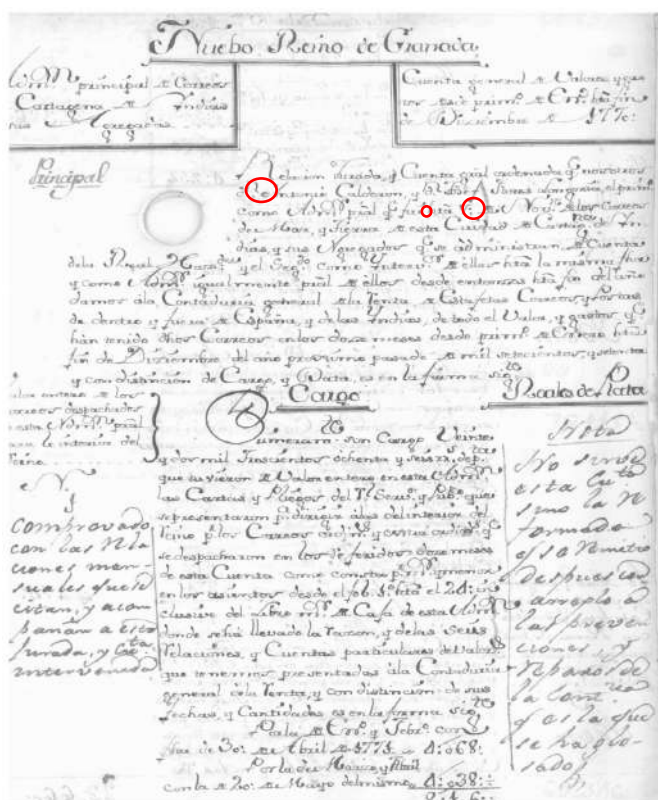 Nuebo Reino de Granada
Adm.ⁿ principal de Correos
Cartagena de Yndias
Agregadas
Cuenta general de Valores, y gas
tos desde prim.º de En.º hta fin
de Diziembre de 1770:
Principal
Relacion Jurada, y Cuenta gral ordenada q.e nosotros
Antonio Calderon, y
como Adm.r pral q.e
de Mar, y Tierra de esta Ciudad de Cartag.na de Yn
dias, y sus Agregados q.e se administran de Cuenta
dela Real Haz.da y el Seg.do como Ynter.no de ellas hta la misma
y como Adm.r igualmente pral de ellos desde entonzes hta fin del año
damos ála Contaduria general de la Renta de Estafetas Correos y Postas
de dentro, y fuera de España, y delas Yndias, de todo el Valor, y gastos q.e
han tenido dhos Correos en los doze meses desde prim.º de Enero hta
fin de Diziembre del año proximo pasado de mil setecientos, y setenta
y con distincion de Cargo, y Data, es en la forma sig.te
Cargo
Reales de Plata
Valor entero de los
correos despachados
esta Adm.n pral
para lo interior del
Reino.
son Cargo Veinte
y dos mil Trescientos ochenta y seis
que tuvieron de Valor entero en esta Adm.n
las Cartas y Pliegos del R.l Serv.º y Pub.º que
se presentaron p.a dirigir álas del interior del
Reino p.r los Correos ordin.s y extraordin.s q.e
se despacharon en los referidos doze meses
de esta Cuenta como consta p.r m.r y menor
en los asientos desde el fol. 3.º hta el 24: in
clusive del Libro m.r de Caja de esta Adm.n
donde se ha llevado la razon, y delas Seis
Relaciones, y Cuentas particulares del valor
que tenemos presentadas ála Contaduria
general dela Renta, y con distincion de sus
fechas, y Cantidades es en la forma sig.te
Por la de En.º y Febr.º con
fha de 30: de Abril de 1771 4:068:
Por la de Marzo, y Abril
con la de 20: de Mayo del mismo 4:038:
N.
1
Comprovado
con las Rela
ciones men
suales que se
citan, y acom
pañan a esta
Jurada, y Cta
intervenida
Nota
No sirve
esta Cta
sino la re
formada
q.e se remitio
despues con
arreglo á
las preven
ciones, y
reparos de
la Cont.ria
y es la que
se ha glo-
sado